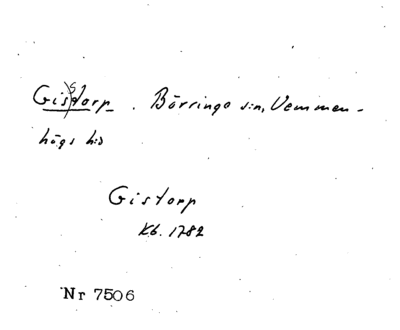 Gissdorp. Börringe s:n, Vemmen-
högs hd
Gistorp
Kb. 1782
Nr 7506